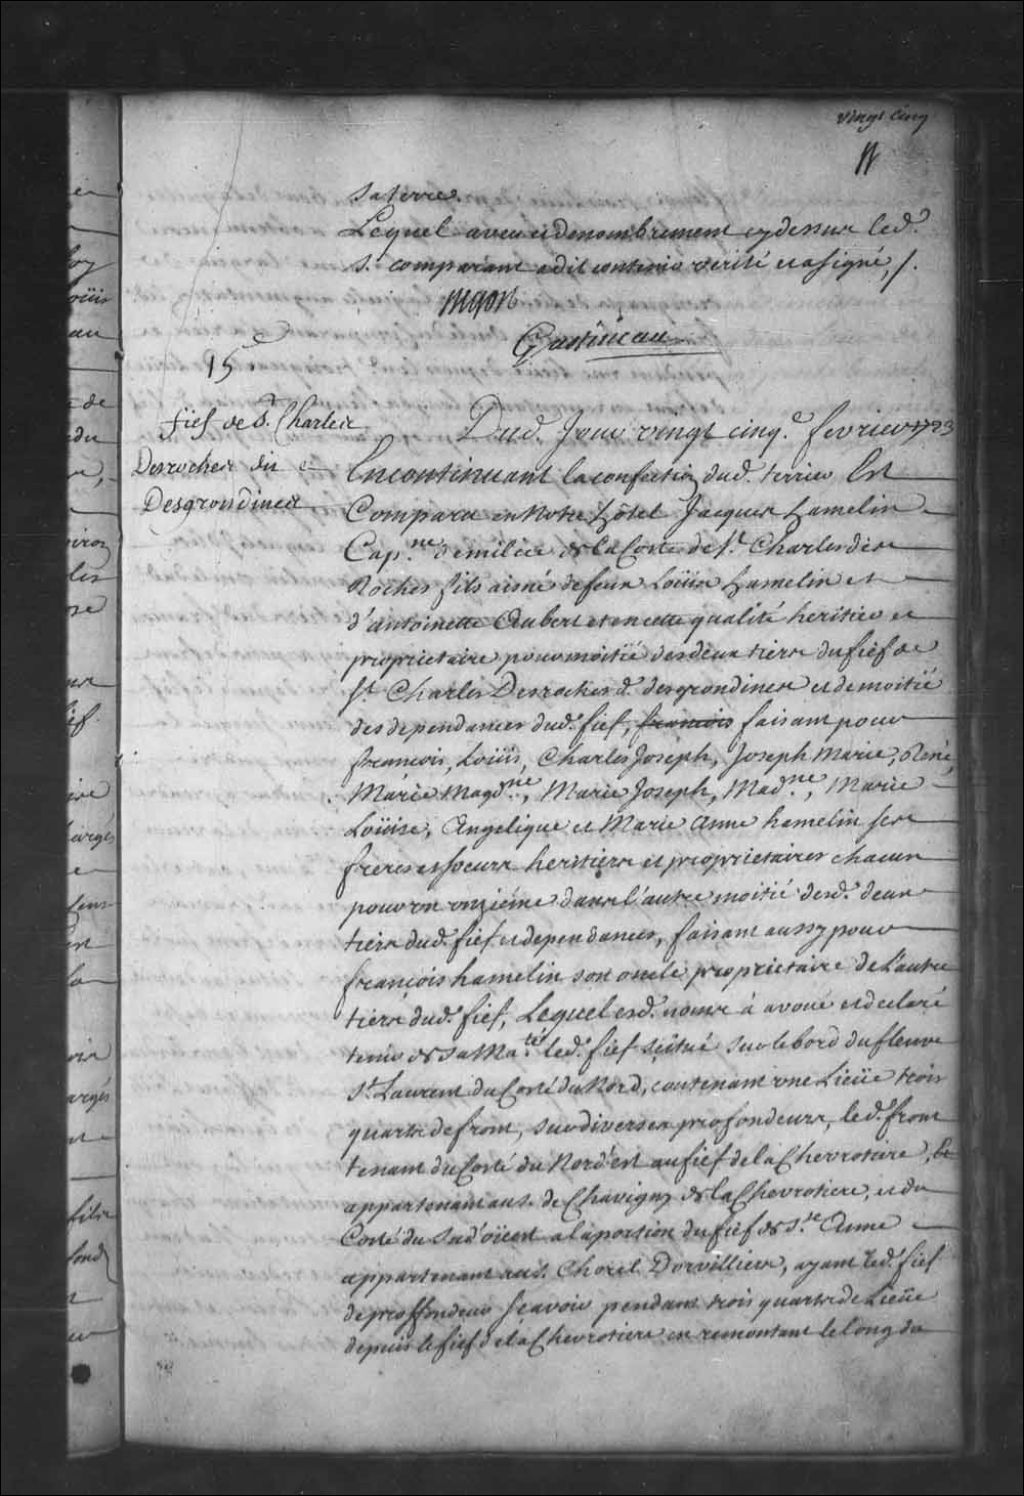 vingt cinq
sa terre.
Lequel aveu et denombrement cydessus led.
S. comparant a dit contenir verité et a signé, /.
Gastineau
15e
fief de St. Charles
Desroches dit
Desgrondines
Dud. Jour vingt cinq.e fevrier 1723
Encontinuant la confection dud. terrier Est
Comparu en Notre hôtel Jacques hamelin
Cap.ne de milice de la Coste de St. Charles des
Roches fils aisné de feu Loüis hamelin et
d'antoinette Aubert et en cette qualité heritier et
proprietaire pour moitié des deux tiers du fief de
St. Charles Desroches d. desgrondines et de moitié
des dependances dud. fief, francois faisant pour
francois, Loüis, Charles Joseph, Joseph Marie, René
Marie Magd.ne, Marie Joseph, Mad.ne, Marie
Loüise, Angelique et Marie Anne hamelin ses
freres et soeurs heritiers et proprietaires chacun
pour un onziéme dans l'autre moitié desd. deux
tiers dud. fief et dependances, faisant aussy pour
françois hamelin son oncle proprietaire de l'autre
tiers dud. fief, Lequel esd. noms à avoué et declaré
tenir de sa Ma.té led. fief scitué sur le bord du fleuve
St. Laurent du Costé du Nord, contenant une Lieüe trois
quarts de front, sur diverses profondeurs, led. front
tenant du Costé du Nord'est au fief de la Chevrotiere,
appartenant au s. de Chavigny de la Chevrotiere, et du
Costé du Sud'oüest a la portion du fief de Ste. Anne
appartenant au s. Chorel Dorvilliers, ayant led. fief
de proffondeur sçavoir pendant trois quarts de Lieüe
depuis le fief de la Chevrotiere en remontant le long du